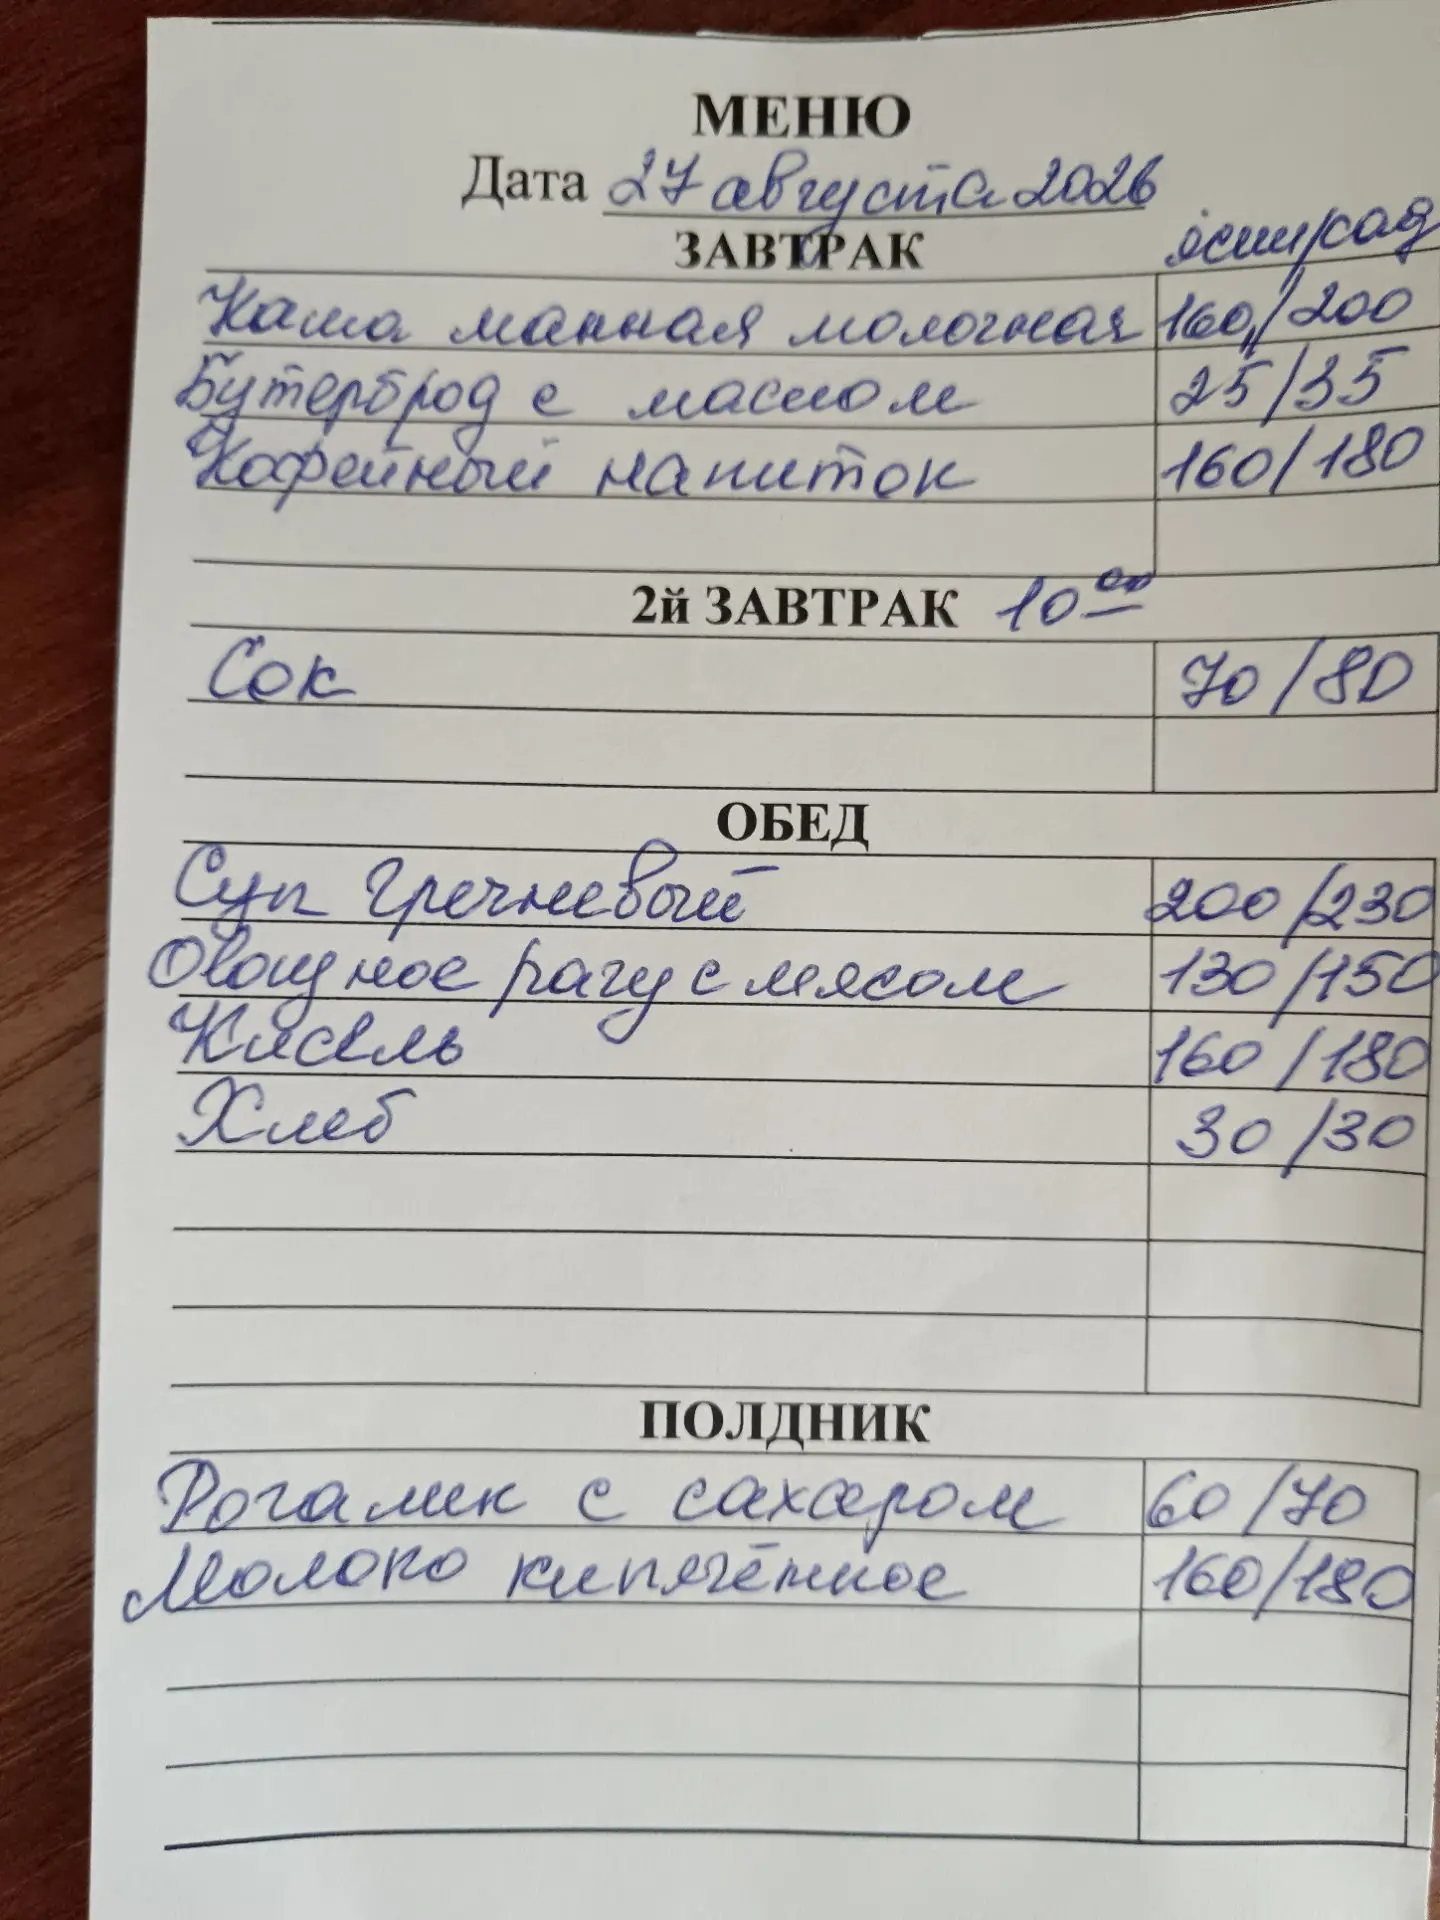 МЕНЮ
Дата 27 августа 2026
ЗАВТРАК ясли/сад
Каша манная молочная 160/200
Бутерброд с маслом 25/35
Кофейный напиток 160/180
2й ЗАВТРАК 10 00
Сок 70/80
ОБЕД
Суп гречневый 200/230
Овощное рагу с мясом 130/150
Кисель 160/180
Хлеб 30/30
ПОЛДНИК
Рогалик с сахаром 60/70
Молоко кипячёное 160/180